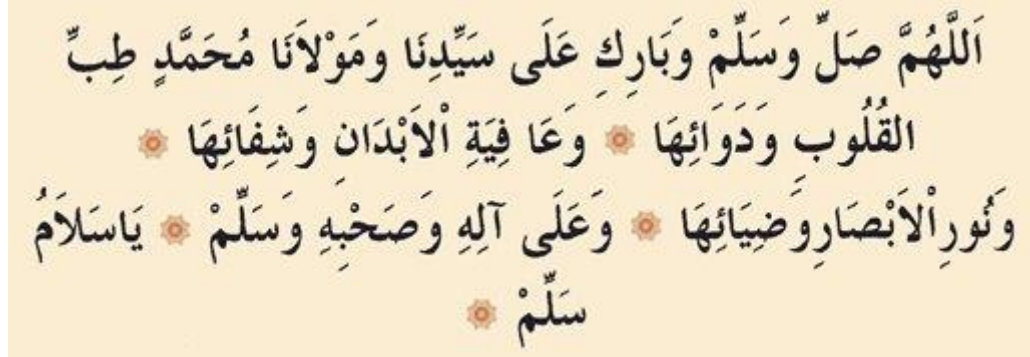 اَللَّهُمَّ صَلِّ وَسَلِّمْ وَبَارِكِ عَلَى سَيِّدِنَا وَمَوْلاَنَا مُحَمَّدٍ طِبِّ
القُلُوبِ وَدَوَائِهَا ۞ وَعَا فِيَةِ اْلاَبْدَانِ وَشِفَائِهَا ۞
وَنُورِاْلاَبْصَارِوَضِيَائِهَا ۞ وَعَلَى آلِهِ وَصَحْبِهِ وَسَلِّمْ ۞ يَاسَلاَمُ
سَلِّمْ ۞